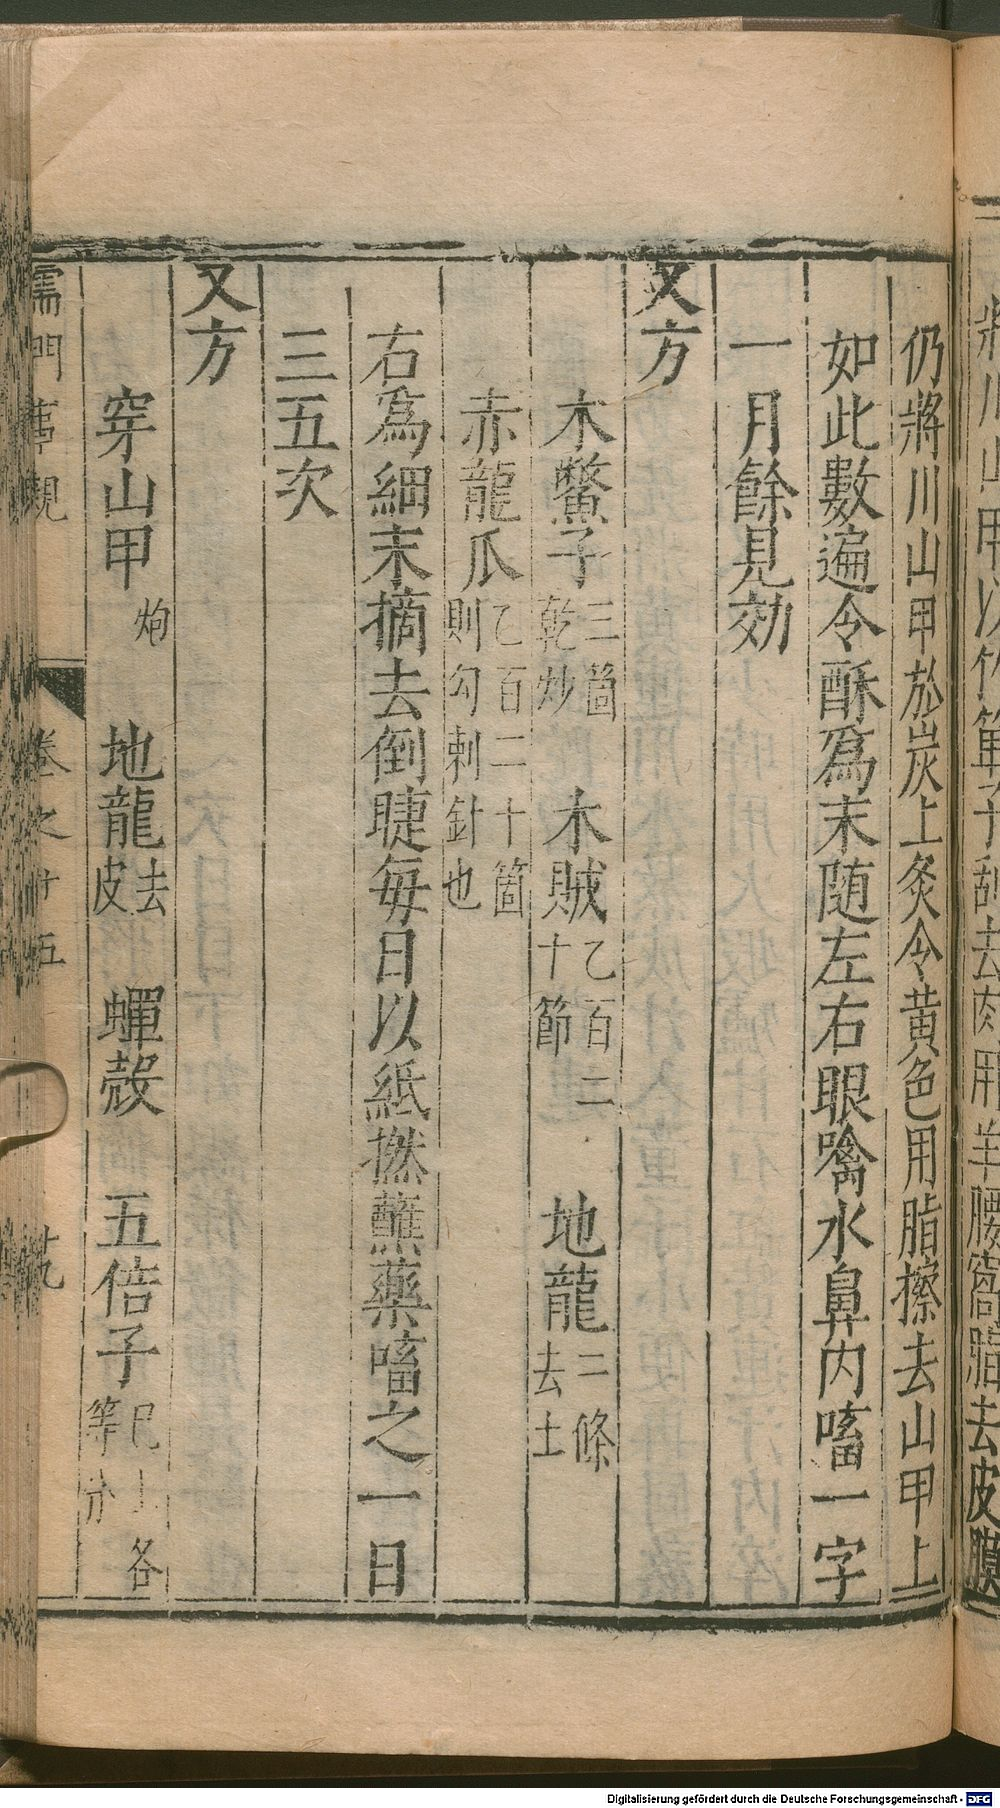 將川山甲以竹箄子刮去肉用羊腰窩脂去皮膜
仍將川山甲於炭上炙令黄色用脂擦去山甲上
如此數遍令酥爲末随左右眼噙水鼻内嗃一字
一月餘見効
又方
木鱉子三箇乾炒 木賊乙百二十節 地龍二條去土
赤龍爪乙百二十箇則勾刺針也
右爲細末摘去倒睫每日以紙撚蘸藥嗃之一日
三五次
又方
穿山甲炮 地龍去皮 蟬殼 五倍子已上各等分
儒門事親 卷之十五 廿九
Digitalisierung gefördert durch die Deutsche Forschungsgemeinschaft - DFG